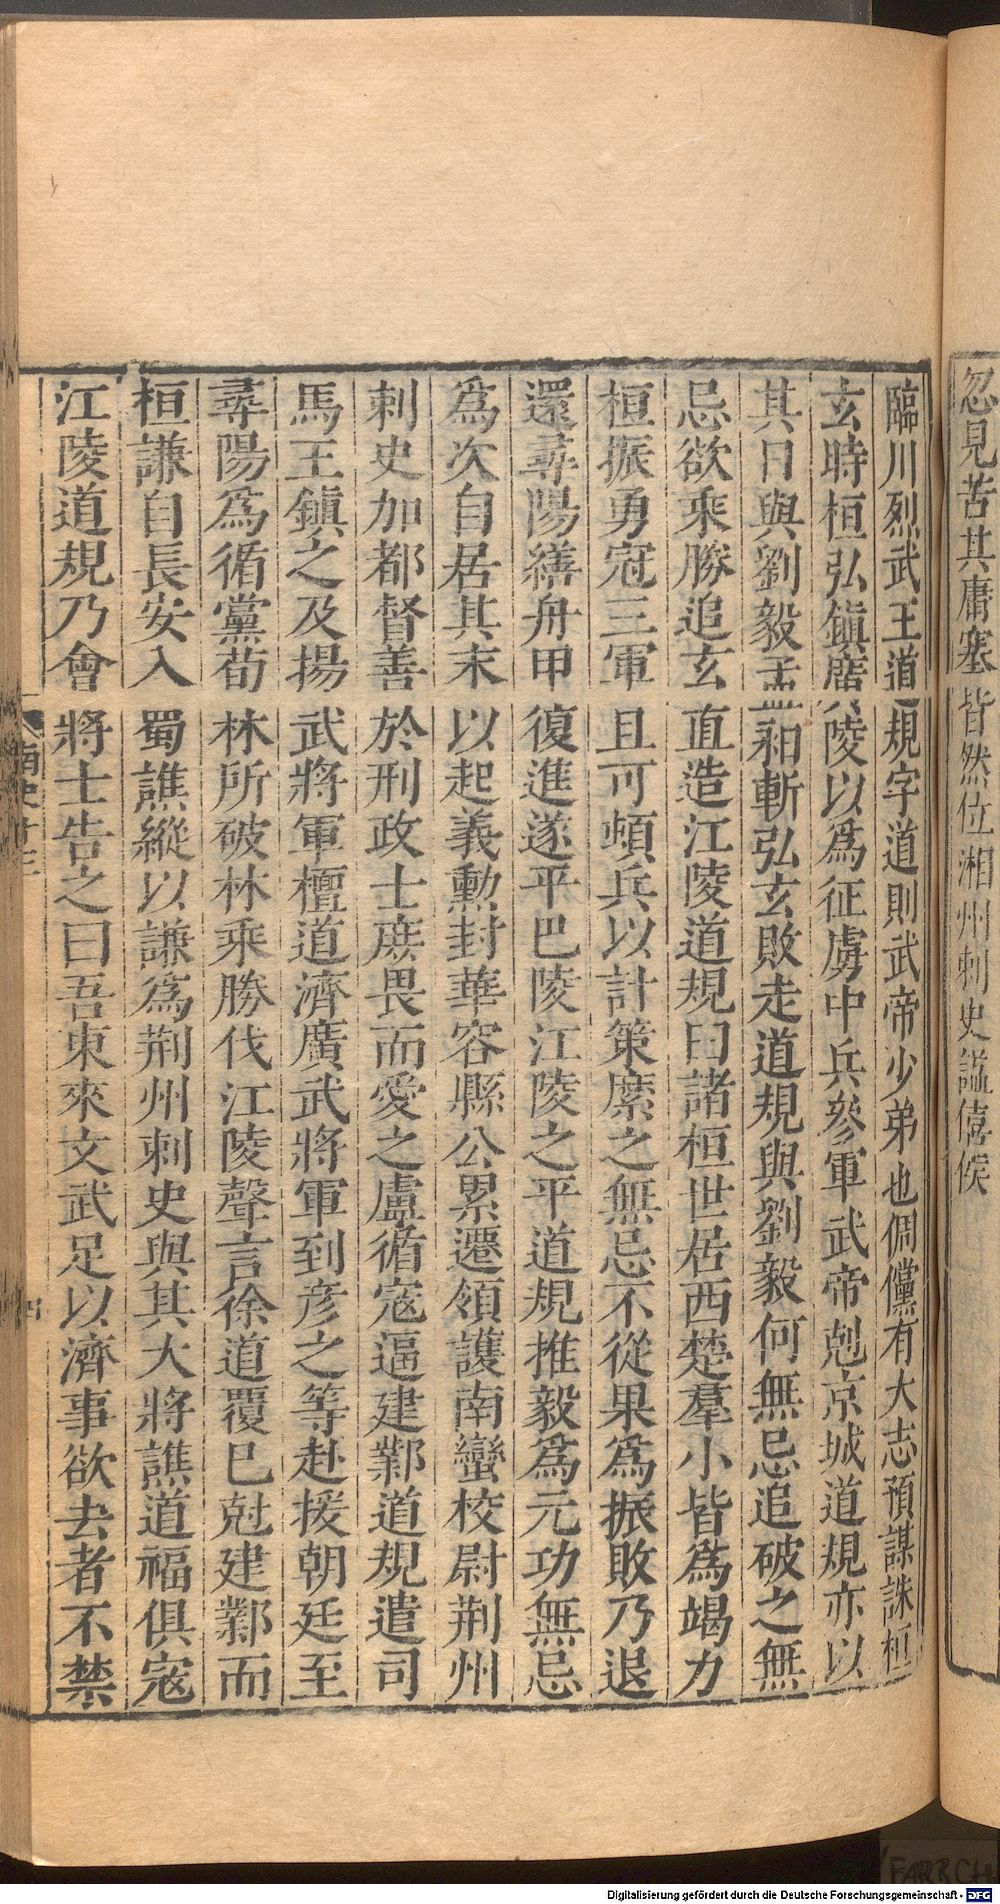 忽見苦其庸塞皆然位湘州刺史謚僖侯
臨川烈武王道規字道則武帝少弟也倜儻有大志預謀誅桓
玄時桓弘鎮廣陵以為征虜中兵參軍武帝剋京城道規亦以
其日與劉毅孟昶斬弘玄敗走道規與劉毅何無忌追破之無
忌欲乘勝追玄直造江陵道規曰諸桓世居西楚羣小皆為竭力
桓振勇冠三軍且可頓兵以計策縻之無忌不從果為振敗乃退
還尋陽繕舟甲復進遂平巴陵江陵之平道規推毅為元功無忌
為次自居其末以起義勳封華容縣公累遷領護南蠻校尉荆州
刺史加都督善於刑政士庶畏而愛之盧循寇逼建鄴道規遣司
馬王鎮之及揚武將軍檀道濟廣武將軍到彦之等赴援朝廷至
尋陽為循黨荀林所破林乘勝伐江陵聲言徐道覆巳尅建鄴而
桓謙自長安入蜀譙縱以謙為荆州刺史與其大將譙道福俱寇
江陵道規乃會將士告之曰吾東來文武足以濟事欲去者不禁
南史十三
四
Digitalisierung gefördert durch die Deutsche Forschungsgemeinschaft - DFG